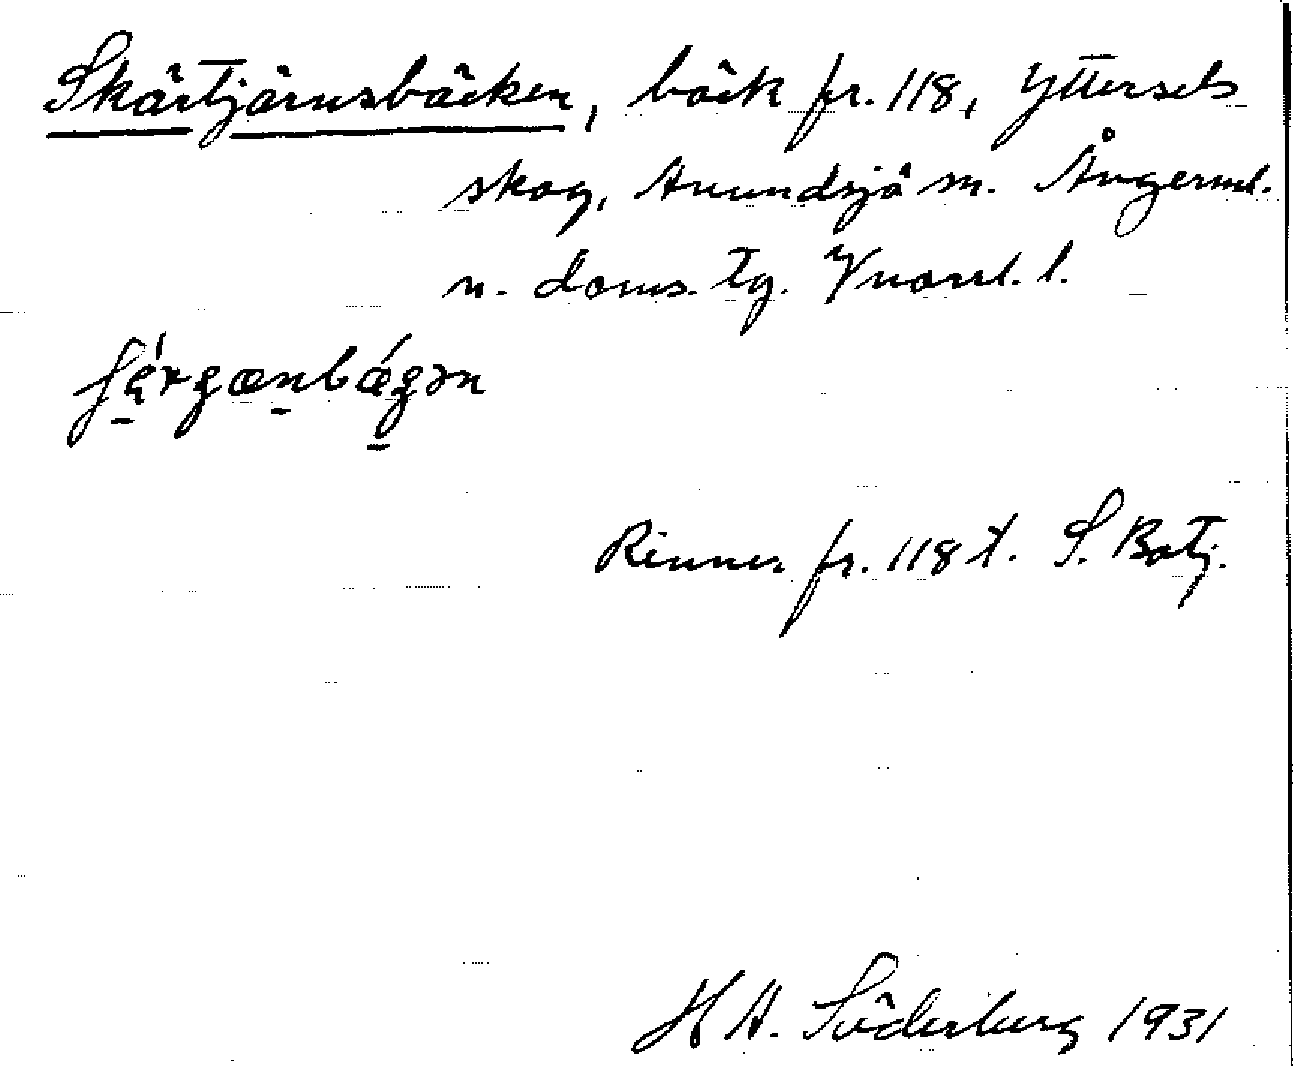 Skärtjärnsbäcken, bäck fr. 118, Yttersels
skog, Anundsjö sn. Ångerml.
n. doms. tg. Vnorrl. l.
Rinner fr. 118 t. S. Botj.
H A. Söderberg 1931